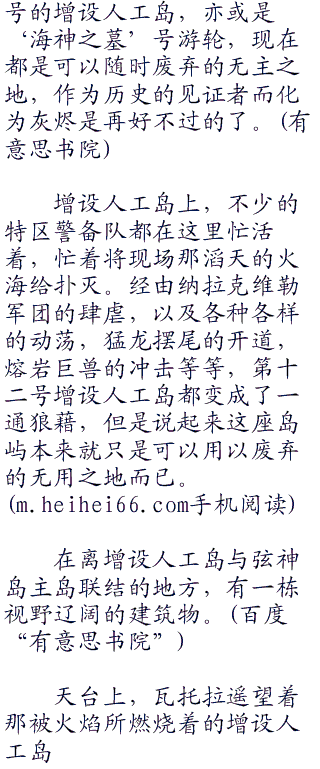 号的增设人工岛，亦或是
‘海神之墓’号游轮，现在
都是可以随时废弃的无主之
地，作为历史的见证者而化
为灰烬是再好不过的了。(有
意思书院)
增设人工岛上，不少的
特区警备队都在这里忙活
着，忙着将现场那滔天的火
海给扑灭。经由纳拉克维勒
军团的肆虐，以及各种各样
的动荡，猛龙摆尾的开道，
熔岩巨兽的冲击等等，第十
二号增设人工岛都变成了一
通狼藉，但是说起来这座岛
屿本来就只是可以用以废弃
的无用之地而已。
(m.heihei66.com手机阅读)
在离增设人工岛与弦神
岛主岛联结的地方，有一栋
视野辽阔的建筑物。(百度
“有意思书院”)
天台上，瓦托拉遥望着
那被火焰所燃烧着的增设人
工岛